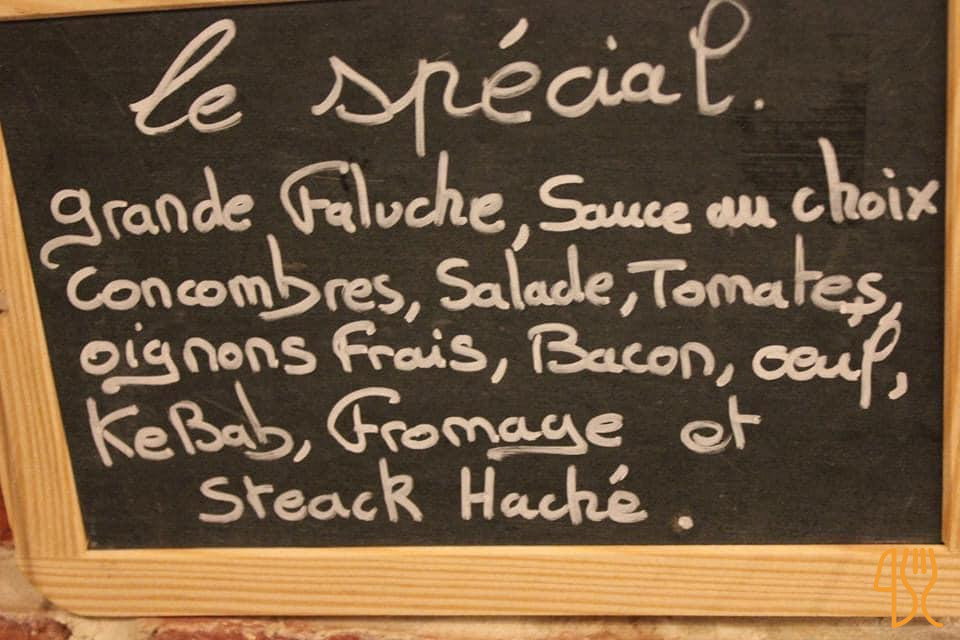 le spécial.
grande Faluche, Sauce au choix
Concombres, Salade, Tomates,
oignons Frais, Bacon, oeuf,
KeBab, Fromage et
Steack Haché.